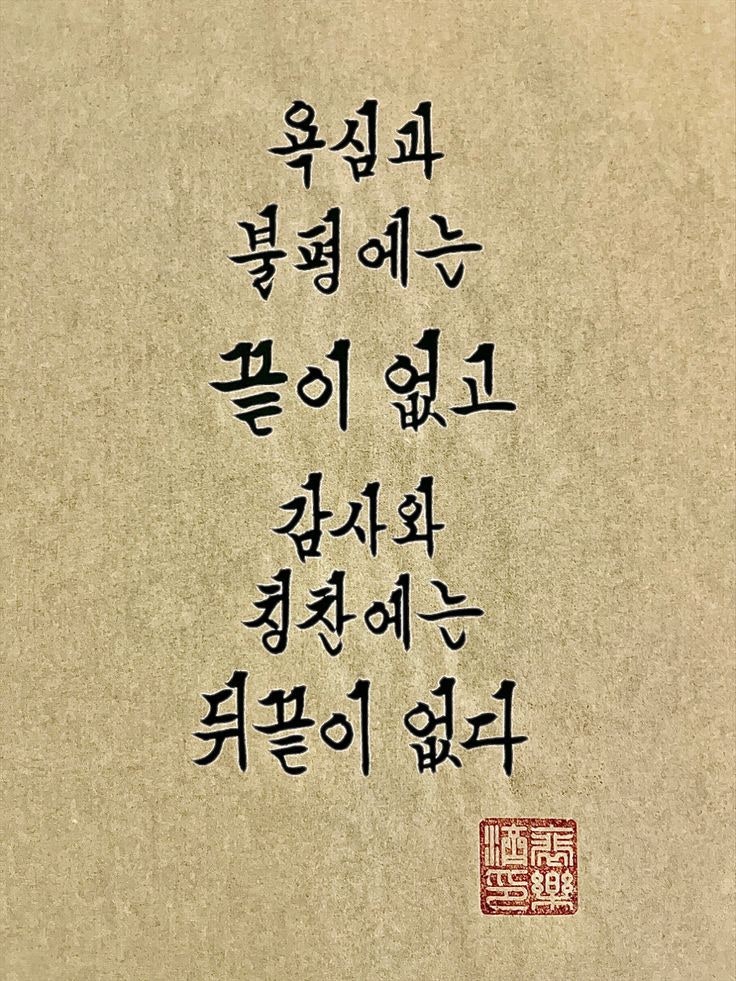 욕심과
불평에는
끝이 없고
감사와
칭찬에는
뒤끝이 없다